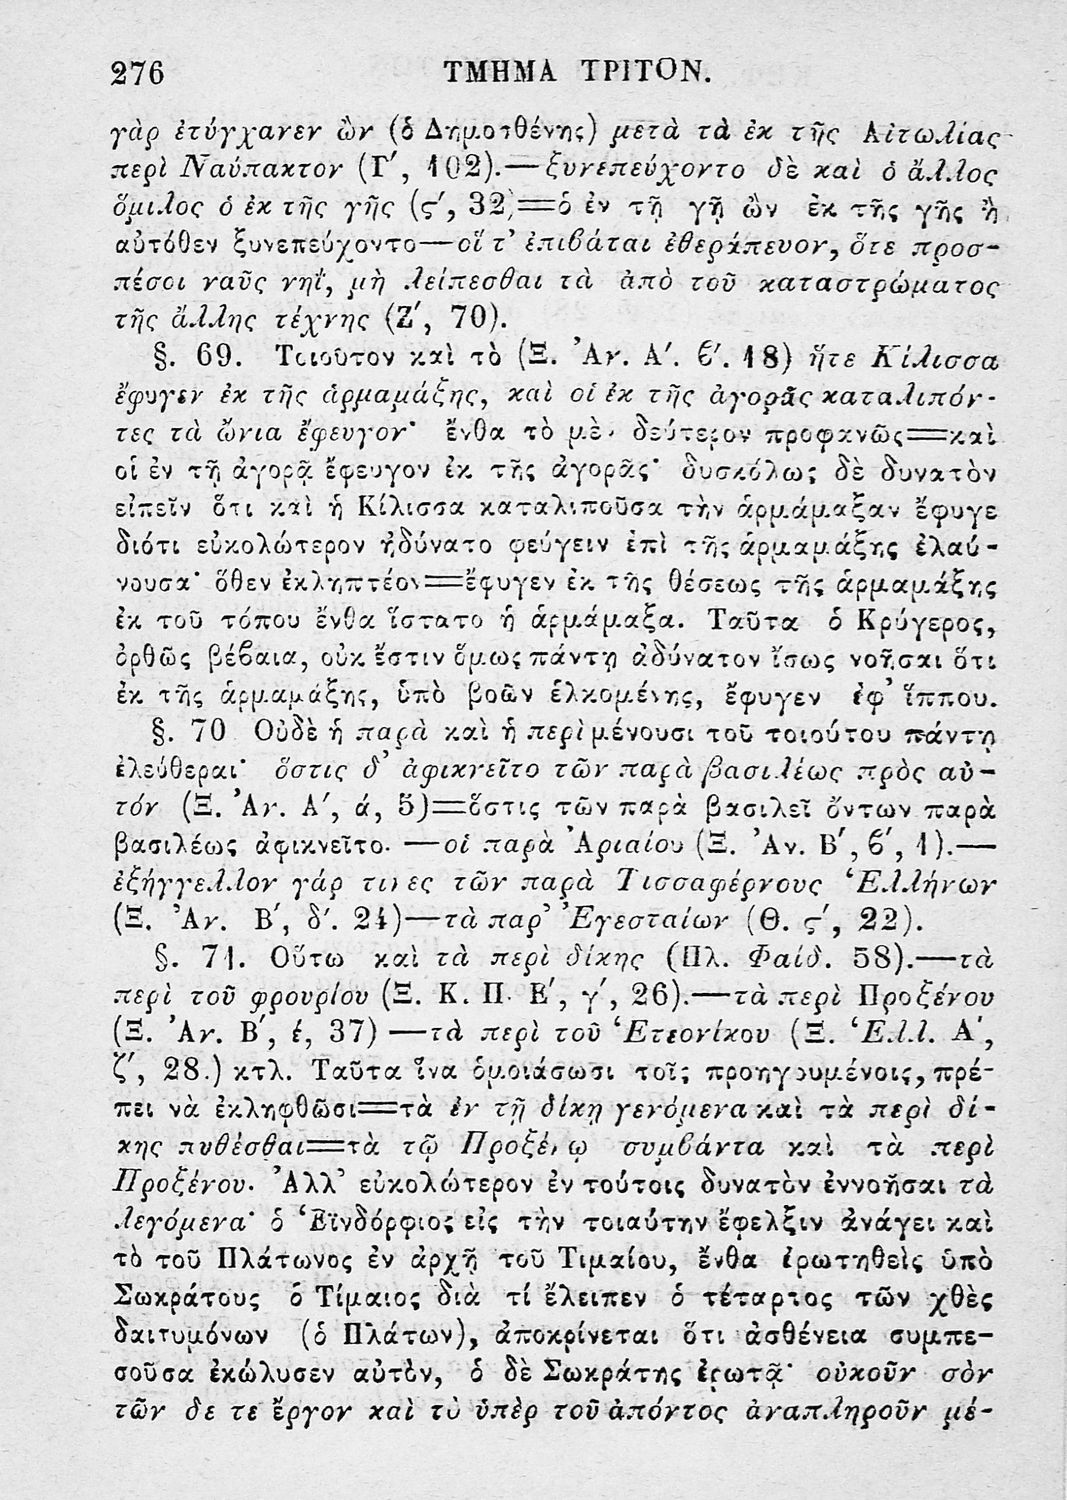 276 ΤΜΗΜΑ ΤΡΙΤΟΝ.
γὰρ ἐτύγχανεν ὢν (ὁ Δημοσθένης) μετὰ τὰ ἐκ τῆς Αἰτωλίας
περὶ Ναύπακτον (Γ', 102).—ξυνεπεύχοντο δὲ καὶ ὁ ἄλλος
ὅμιλος ὁ ἐκ τῆς γῆς (ς', 32)=ὁ ἐν τῇ γῇ ὢν ἐκ τῆς γῆς ἢ
αὐτόθεν ξυνεπεύχοντο—οἵ τ' ἐπιβάται ἐθεράπευον, ὅτε προσ-
πέσοι ναῦς νηΐ, μὴ λείπεσθαι τὰ ἀπὸ τοῦ καταστρώματος
τῆς ἄλλης τέχνης (Ζ', 70).
§. 69. Τοιοῦτον καὶ τὸ (Ξ. Ἀν. Α'. β'. 18) ἥτε Κίλισσα
ἔφυγεν ἐκ τῆς ἁρμαμάξης, καὶ οἱ ἐκ τῆς ἀγορᾶς καταλιπόν-
τες τὰ ὤνια ἔφευγον· ἔνθα τὸ μὲν δεύτερον προφανῶς=καὶ
οἱ ἐν τῇ ἀγορᾷ ἔφευγον ἐκ τῆς ἀγορᾶς· δυσκόλως δὲ δυνατὸν
εἰπεῖν ὅτι καὶ ἡ Κίλισσα καταλιποῦσα τὴν ἁρμάμαξαν ἔφυγε
διότι εὐκολώτερον ἠδύνατο φεύγειν ἐπὶ τῆς ἁρμαμάξης ἐλαύ-
νουσα· ὅθεν ἐκληπτέον=ἔφυγεν ἐκ τῆς θέσεως τῆς ἁρμαμάξης
ἐκ τοῦ τόπου ἔνθα ἵστατο ἡ ἁρμάμαξα. Ταῦτα ὁ Κρύγερος,
ὀρθῶς βέβαια, οὐκ ἔστιν ὅμως πάντῃ ἀδύνατον ἴσως νοῆσαι ὅτι
ἐκ τῆς ἁρμαμάξης, ὑπὸ βοῶν ἑλκομένης, ἔφυγεν ἐφ' ἵππου.
§. 70 Οὐδὲ ἡ παρὰ καὶ ἡ περὶ μένουσι τοῦ τοιούτου πάντῃ
ἐλεύθεραι· ὅστις δ' ἀφικνεῖτο τῶν παρὰ βασιλέως πρὸς αὐ-
τόν (Ξ. Ἀν. Α', ά, 5)=ὅστις τῶν παρὰ βασιλεῖ ὄντων παρὰ
βασιλέως ἀφικνεῖτο. —οἱ παρὰ Ἀριαίου (Ξ. Ἀν. Β', β', 1).—
ἐξήγγελλον γάρ τινες τῶν παρὰ Τισσαφέρνους Ἑλλήνων
(Ξ. Ἀν. Β', δ'. 24)—τὰ παρ' Ἐγεσταίων (Θ. ς', 22).
§. 71. Οὕτω καὶ τὰ περὶ δίκης (Πλ. Φαίδ. 58).—τὰ
περὶ τοῦ φρουρίου (Ξ. Κ. Π. Ε', γ', 26).—τὰ περὶ Προξένου
(Ξ. Ἀν. Β', έ, 37) —τὰ περὶ τοῦ Ἑτεονίκου (Ξ. Ἑλλ. Α',
ζ', 28.) κτλ. Ταῦτα ἵνα ὁμοιάσωσι τοῖς προηγουμένοις, πρέ-
πει νὰ ἐκληφθῶσι=τὰ ἐν τῇ δίκῃ γενόμενα καὶ τὰ περὶ δί-
κης πυθέσθαι=τὰ τῷ Προξένῳ συμβάντα καὶ τὰ περὶ
Προξένου. Ἀλλ' εὐκολώτερον ἐν τούτοις δυνατὸν ἐννοῆσαι τὰ
λεγόμενα· ὁ Ἑϊνδόρφιος εἰς τὴν τοιαύτην ἔφελξιν ἀνάγει καὶ
τὸ τοῦ Πλάτωνος ἐν ἀρχῇ τοῦ Τιμαίου, ἔνθα ἐρωτηθεὶς ὑπὸ
Σωκράτους ὁ Τίμαιος διὰ τί ἔλειπεν ὁ τέταρτος τῶν χθὲς
δαιτυμόνων (ὁ Πλάτων), ἀποκρίνεται ὅτι ἀσθένεια συμπε-
σοῦσα ἐκώλυσεν αὐτὸν, ὁ δὲ Σωκράτης ἐρωτᾷ· οὐκοῦν σὸν
τῶν δε τε ἔργον καὶ τὸ ὑπὲρ τοῦ ἀπόντος ἀναπληροῦν μέ-